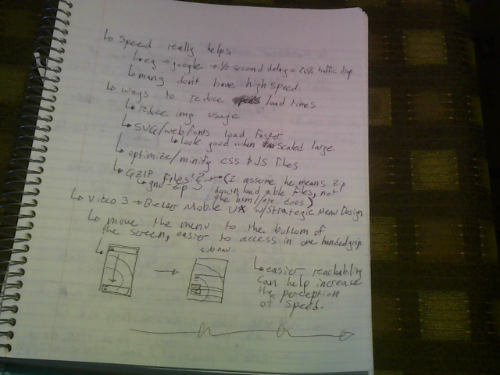 ↳ Speed really helps
↳ eg → google → 1/2 second delay = 20% traffic drop
↳ many don't have high speed
↳ ways to reduce load times
↳ reduce img usage
↳ SVG/web fonts load faster
↳ look good when scaled large
↳ optimize/minify css & JS files
↳ GZIP files? → (I assume he means zip
↳ gnu zip download able files, not
the html/etc ones.)
↳ Video 3 → Better Mobile UX w/Strategic Menu Design
↳ move the menu to the bottom of
the screen, easier to access in one handed grip
sub nav
↳ easier reachability
can help increase
the perception
of speed.